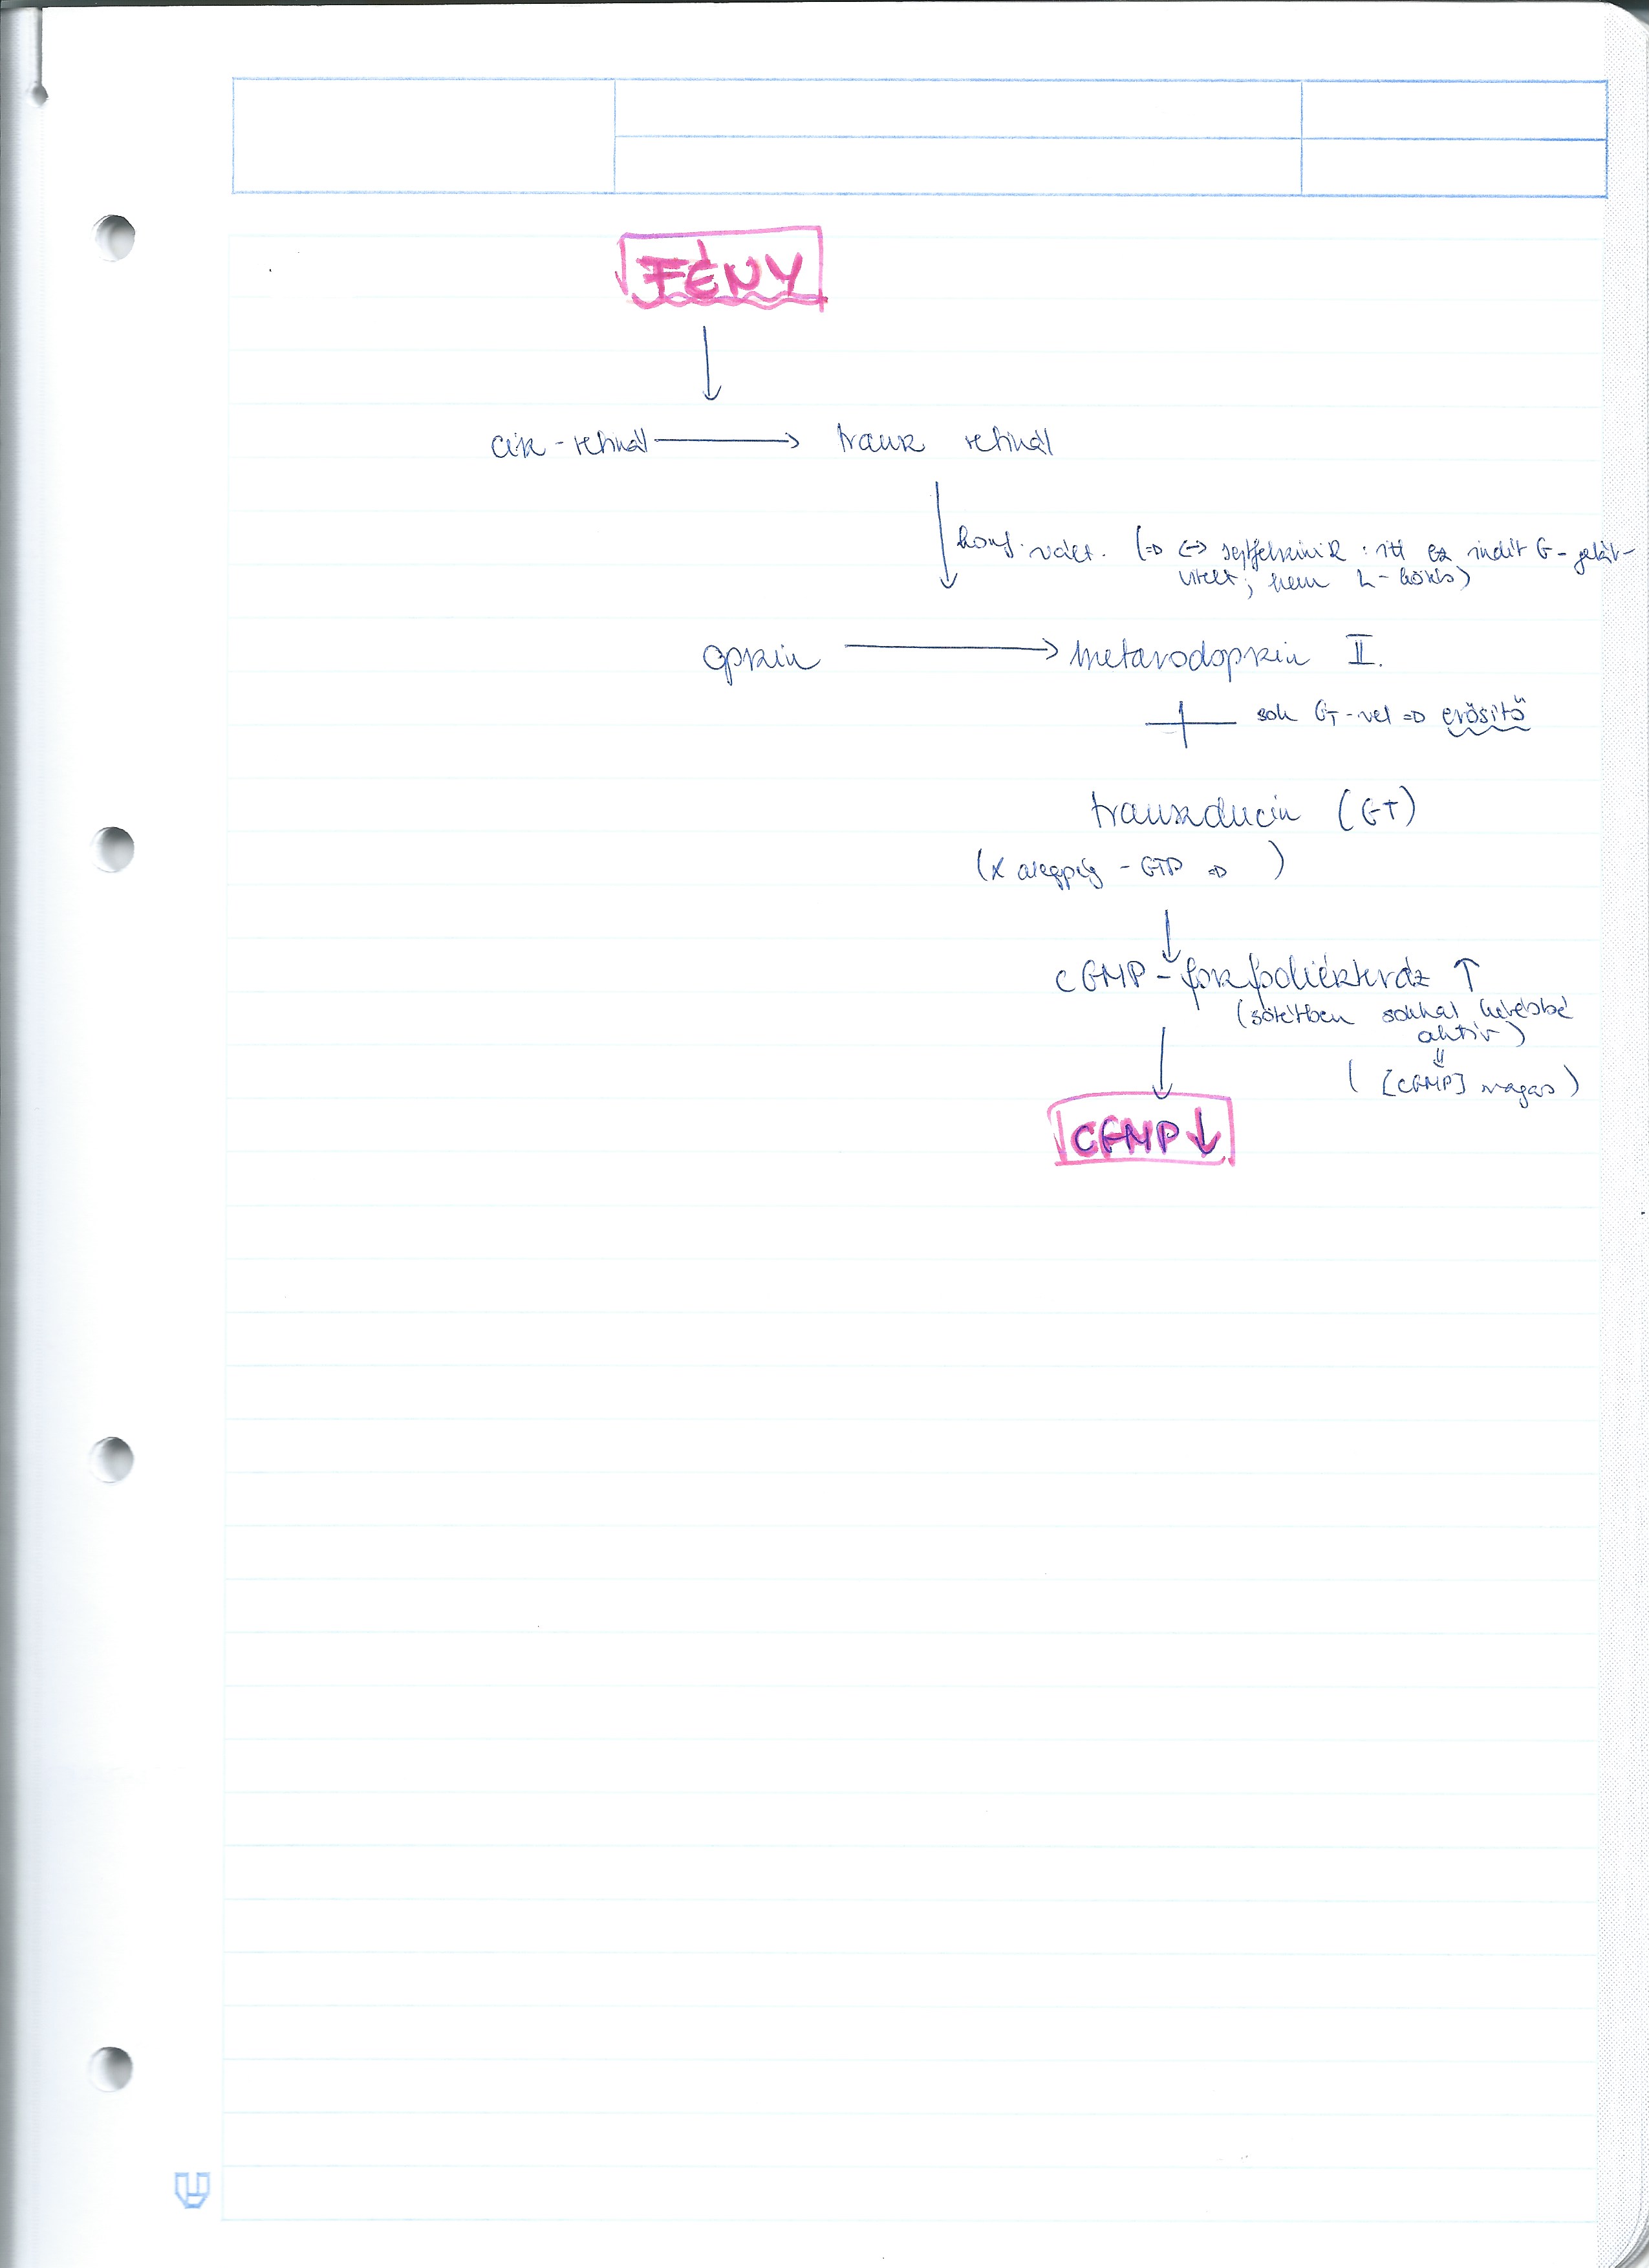 FÉNY
cisz-retinál → transz retinál
konf. vált. (⇒ ↔ sejtfelszíni R : itt ez indít G-
; nem L-kötés)
opszin → metarodopszin II.
sok GT-vel ⇒ erősítő
transzducin (GT)
(α alegység - GTP ⇒ )
cGMP-foszfodiészteráz ↑
(sötétben sokkal kevésbé
aktív)
⇓
( [cGMP] magas )
cGMP↓